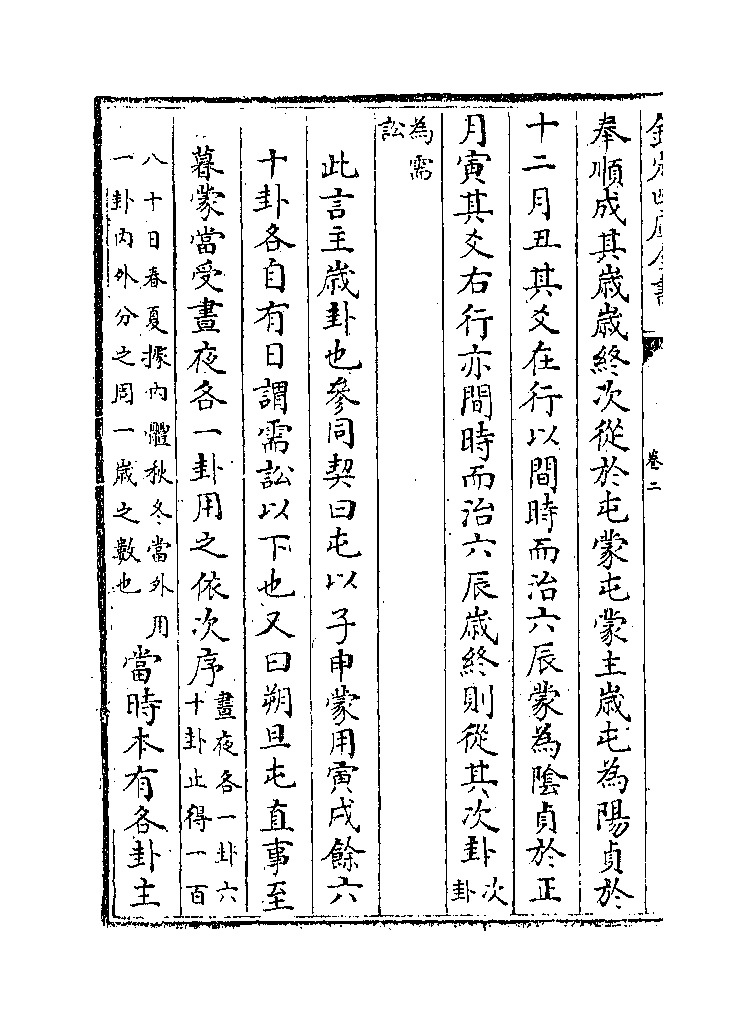 欽定四庫全書 卷二
奉順成其歳歳終次從於屯蒙屯蒙主歳屯為陽貞於
十二月丑其爻在行以間時而治六辰蒙為陰貞於正
月寅其爻右行亦間時而治六辰歳終則從其次卦次卦
為需訟
此言主歳卦也參同契曰屯以子申蒙用寅戌餘六
十卦各自有日謂需訟以下也又曰朔旦屯直事至
暮蒙當受晝夜各一卦用之依次序晝夜各一卦六十卦止得一百
八十日春夏據内體秋冬當外用一卦内外分之周一歳之數也當時本有各卦主